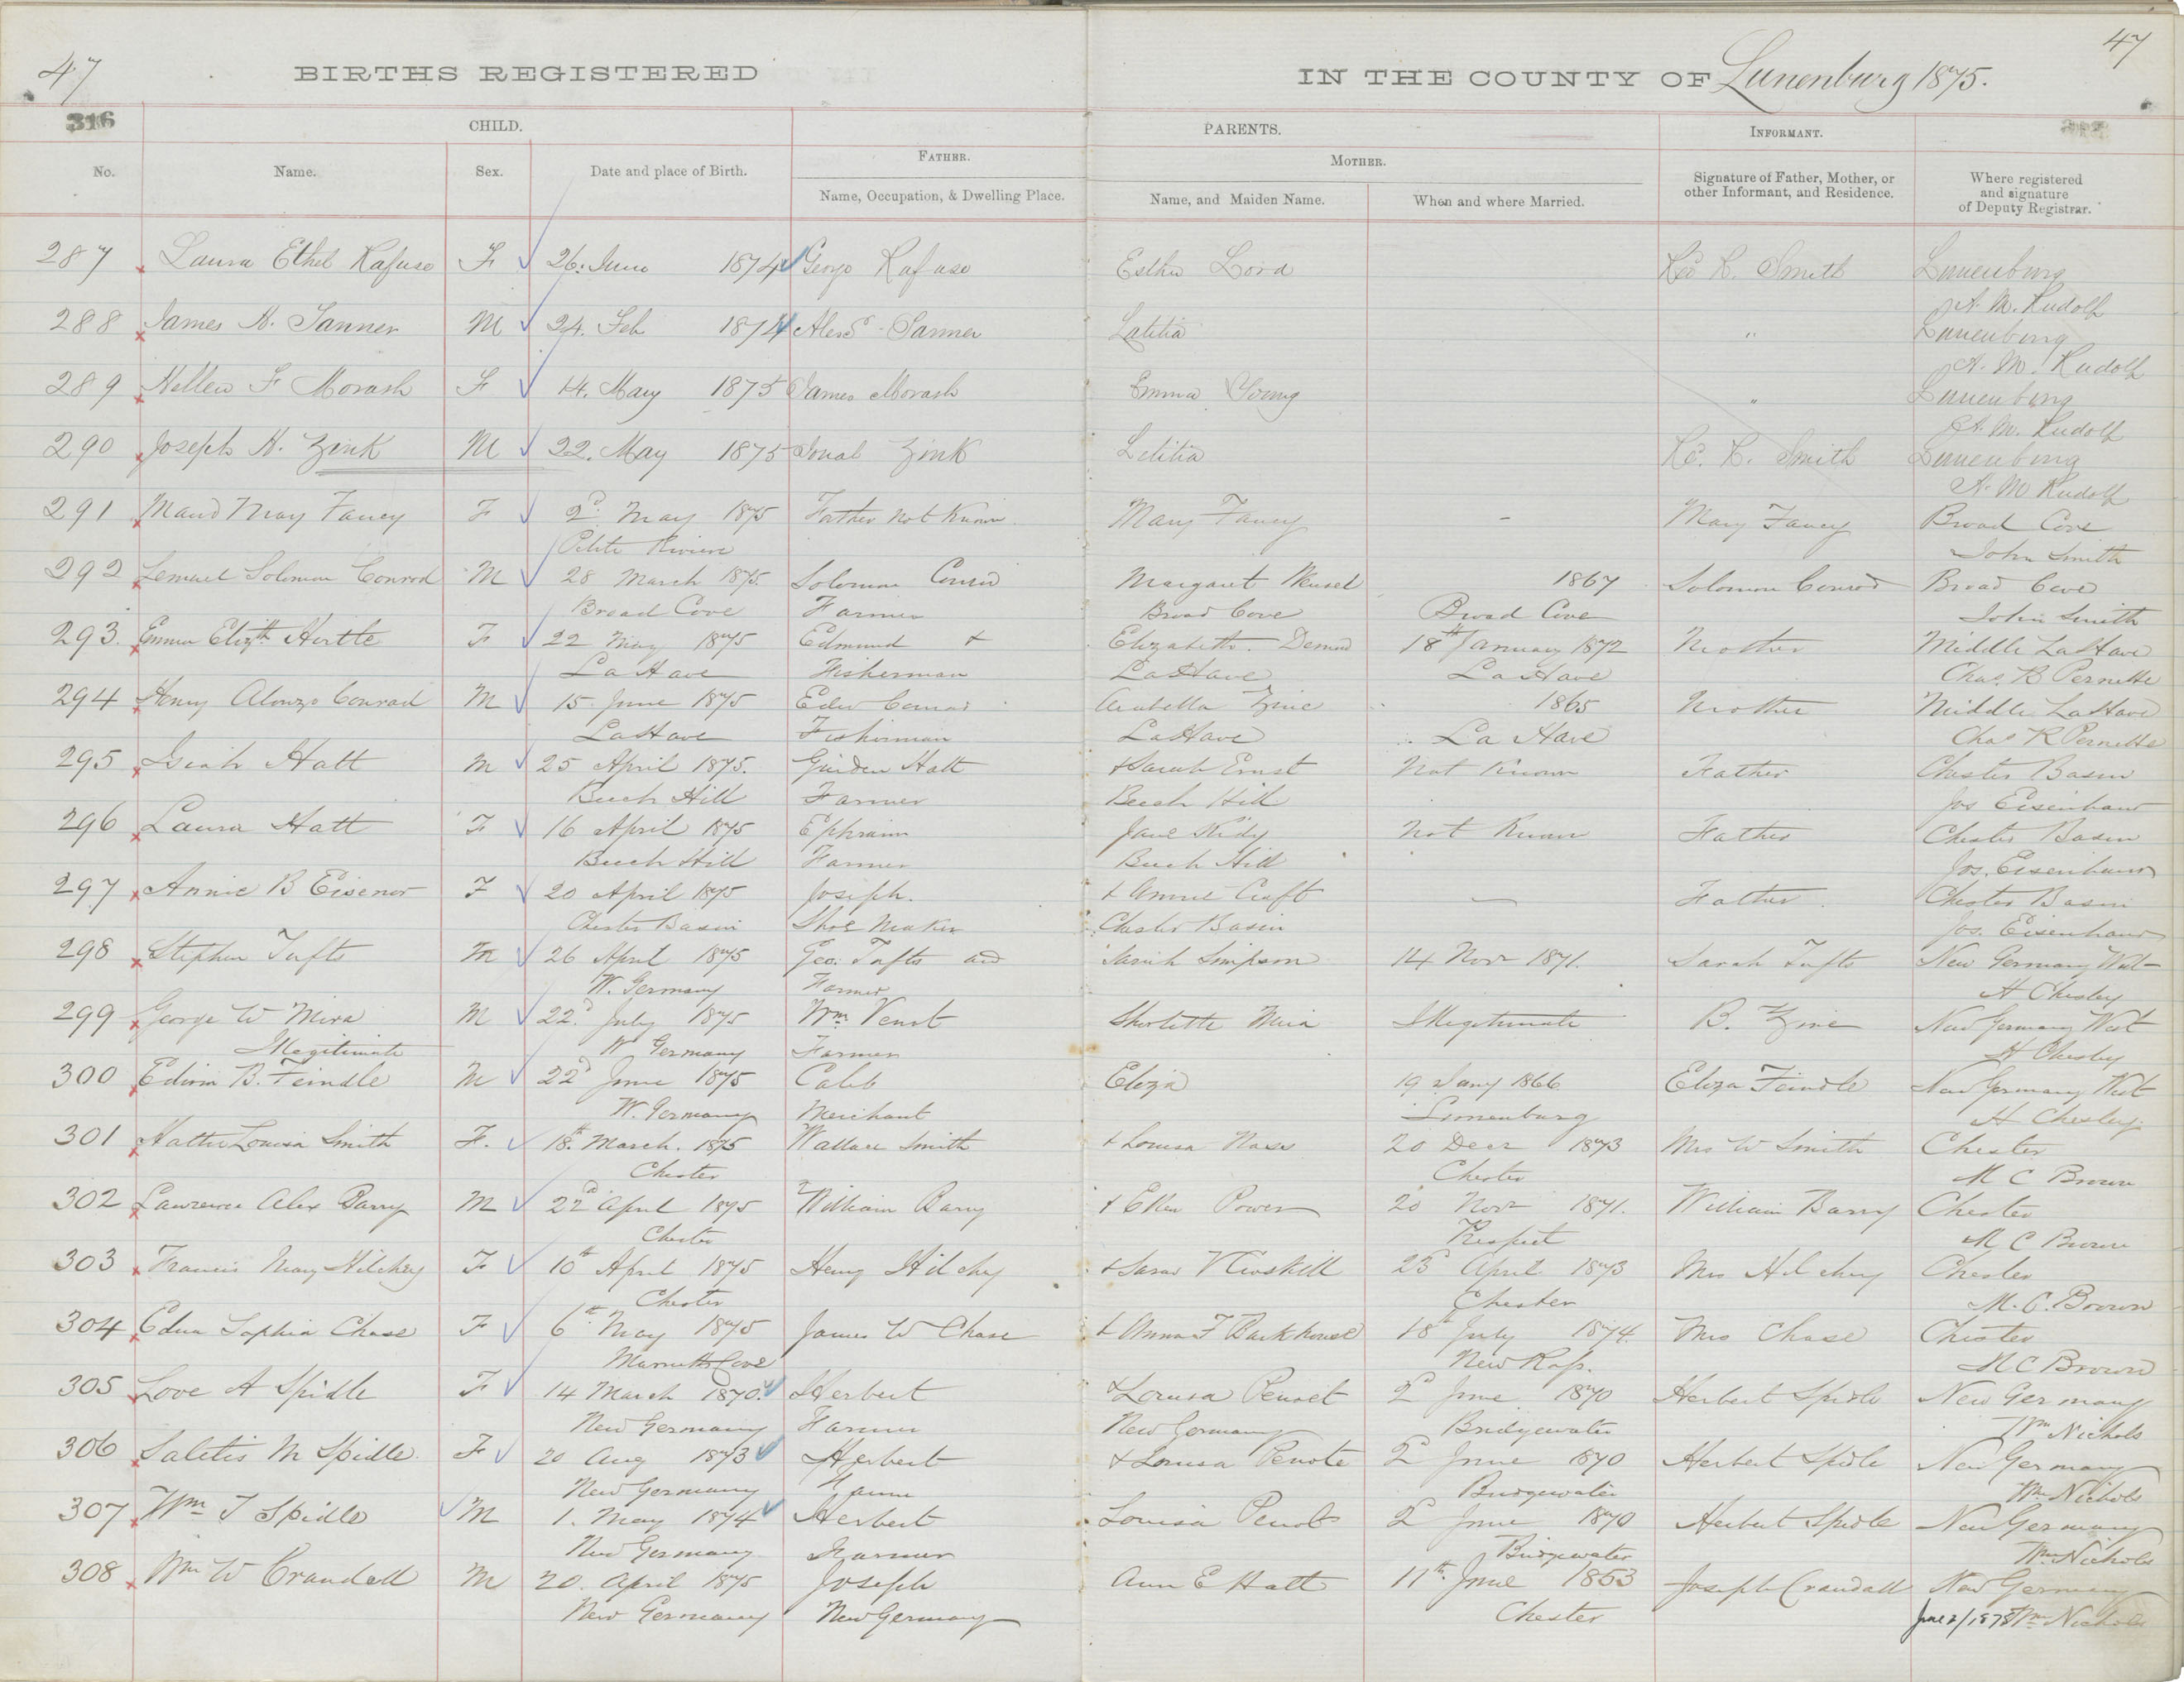 47
BIRTHS REGISTERED
IN THE COUNTY OF Lunenburg 1875.
47
316
CHILD.
PARENTS.
INFORMANT.
No.
Name.
Sex.
Date and place of Birth.
FATHER.
Name, Occupation, & Dwelling Place.
MOTHER.
Name, and Maiden Name.
When and where Married.
Signature of Father, Mother, or other Informant, and Residence.
Where registered and signature of Deputy Registrar.
287 Laura Ethel Rafuse F 26. June 1874 George Rafuse Esther Lord Smith Lunenburg
A. M. Rudolf
288 James H. Tanner M 24. Feb 1874 Alexd Tanner Latitia " Lunenburg
A. M. Rudolf
289 Hellen F Morash F 14. May 1875 James Morash Emma Young " Lunenburg
A. M. Rudolf
290 Joseph H. Zink M 22. May 1875 Zink Letitia Smith Lunenburg
A. M Rudolf
291 Maud May Fancy F 2d May 1875 Father not Known Mary Fancy - Mary Fancy Broad Cove
Petite Riviere John Smith
292 Lemuel Solomon Conrod M 28 March 1875. Solomon Conrod Margaret Wensel 1867 Solomon Conrod Broad Cove
Broad Cove Farmer Broad Cove Broad Cove John Smith
293. Emma Elizth Hirtle F 22 May 1875 Edmund + Elizabeth 18th January 1872 Mother Middle LaHave
LaHave Fisherman LaHave LaHave Chas. R Pernette
294 Henry Alonzo Conrad M 15 June 1875 Conrad Arabella Zinc 1865 Mother Middle LaHave
LaHave Fisherman LaHave La Have Chas R Pernette
295 Isiah Hatt M 25 April 1875. Hatt + Sarah Ernst Not Known Father Chester Basin
Beech Hill Farmer Beech Hill Jos Eisenhaur
296 Laura Hatt F 16 April 1875 Ephraim Jane Not Known Father Chester Basin
Beech Hill Farmer Beech Hill Jos. Eisenhaur
297 Annie B Eisenor F 20 April 1875 Joseph. + Annie Croft — Father Chester Basin
Chester Basin Shoe Maker Chester Basin Jos. Eisenhaur
298 Stephen Tufts M 26 April 1875 Geo. Tufts and Sarah Simpson 14 Nov 1871. Sarah Tufts New Germany West
W. Germany Farmer H Chesley
299 George W Mira M 22d July 1875 Wm Illegitimate B. Zinc New Germany West
Illegitimate W Germany Farmer H Chesley
300 Edwin B. Feindle M 22d June 1875 Caleb Eliza 19 Jany 1866 Eliza Feindle New Germany West
W. Germany Merchant Lunenburg H Chesley
301 Hattie Louisa Smith F. 18th March. 1875 Wallace Smith + Louisa Nass 20 Decr 1873 Mrs W Smith Chester
Chester Chester M C Brown
302 Lawrence Alex Barry M 22d April 1875 William Barry + Ellen Power 20 Novr 1871. William Barry Chester
Chester Prospect M C Brown
303 Francis May Hilchey F 10th April 1875 Henry Hilchey + Sarah 23d April 1873 Mrs Hilchey Chester
Chester Chester M. C. Brown
304 Edna Sophia Chase F 6th May 1875 James W Chase + Anna F Barkhouse 18th July 1874. Mrs Chase Chester
Marriotts Cove New Ross. M C Brown
305 Love A Spidle F 14 March 1870. Herbert + Lousa 2d June 1870 Herbert Spidle New Germany
New Germany Farmer New Germany Bridgewater Wm Nichols
306 Saletis M Spidle F 20 Aug 1873 Herbert + Lousa Penote 2d June 1870 Herbert Spidle New Germany
New Germany Farmer Bridgewater Wm Nichols
307 Wm T Spidle M 1. May 1874 Herbert Louisa Penote 2d June 1870 Herbert Spidle New Germany
New Germany Farmer Bridgewater Wm Nichols
308 Wm W Crandall M 20. April 1875 Joseph Ann E Hatt 11th June 1853 Joseph Crandall New Germany
New Germany New Germany Chester Wm Nichols